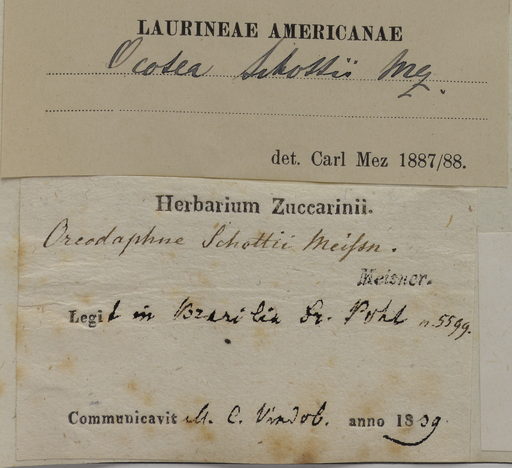 LAURINEAE AMERICANAE
Ocotea Schottii Mez.
det. Carl Mez 1887/88.
Herbarium Zuccarinii.
Oreodaphne Schottii Meissn.
Meisner.
Legit in Brasilia Dr. Pohl n. 5599.
Communicavit M. C. Vindob. anno 1839.